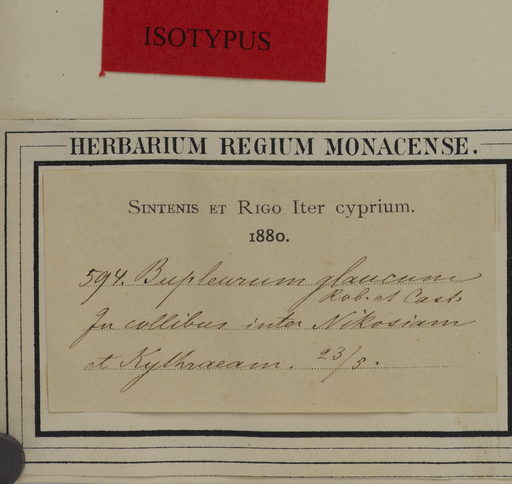 ISOTYPUS
HERBARIUM REGIUM MONACENSE.
SINTENIS ET RIGO Iter cyprium.
1880.
594. Bupleurum glaucum
Rob. et Cast.
In collibus inter Nikosiam
et Kythraeam. 23/5.